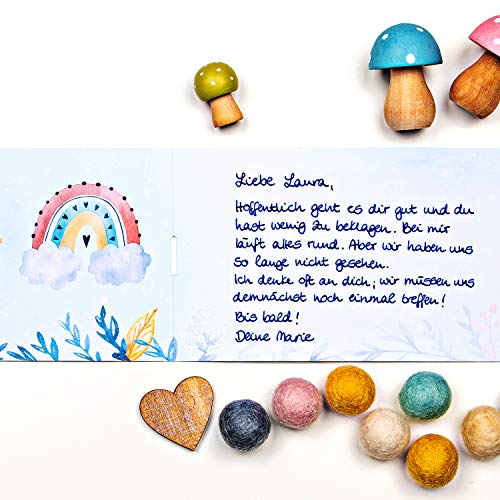 Liebe Laura,
Hoffentlich geht es dir gut und du
hast wenig zu beklagen. Bei mir
läuft alles rund. Aber wir haben uns
so lange nicht gesehen.
Ich denke oft an dich; wir müssen uns
demnächst noch einmal treffen!
Bis bald!
Deine Marie